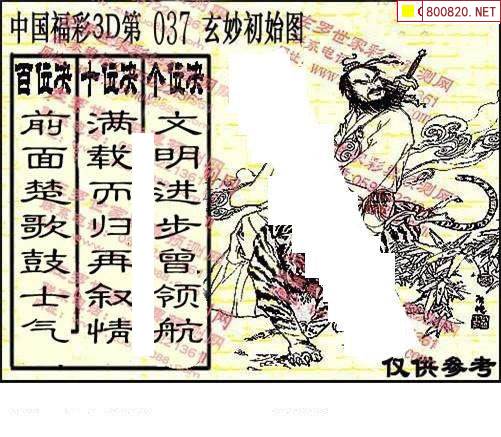 800820.NET
中国福彩3D第 037 玄妙初始图
百位决 十位决 个位决
前面楚歌鼓士气
满载而归再叙情
文明进步曾领航
仅供参考